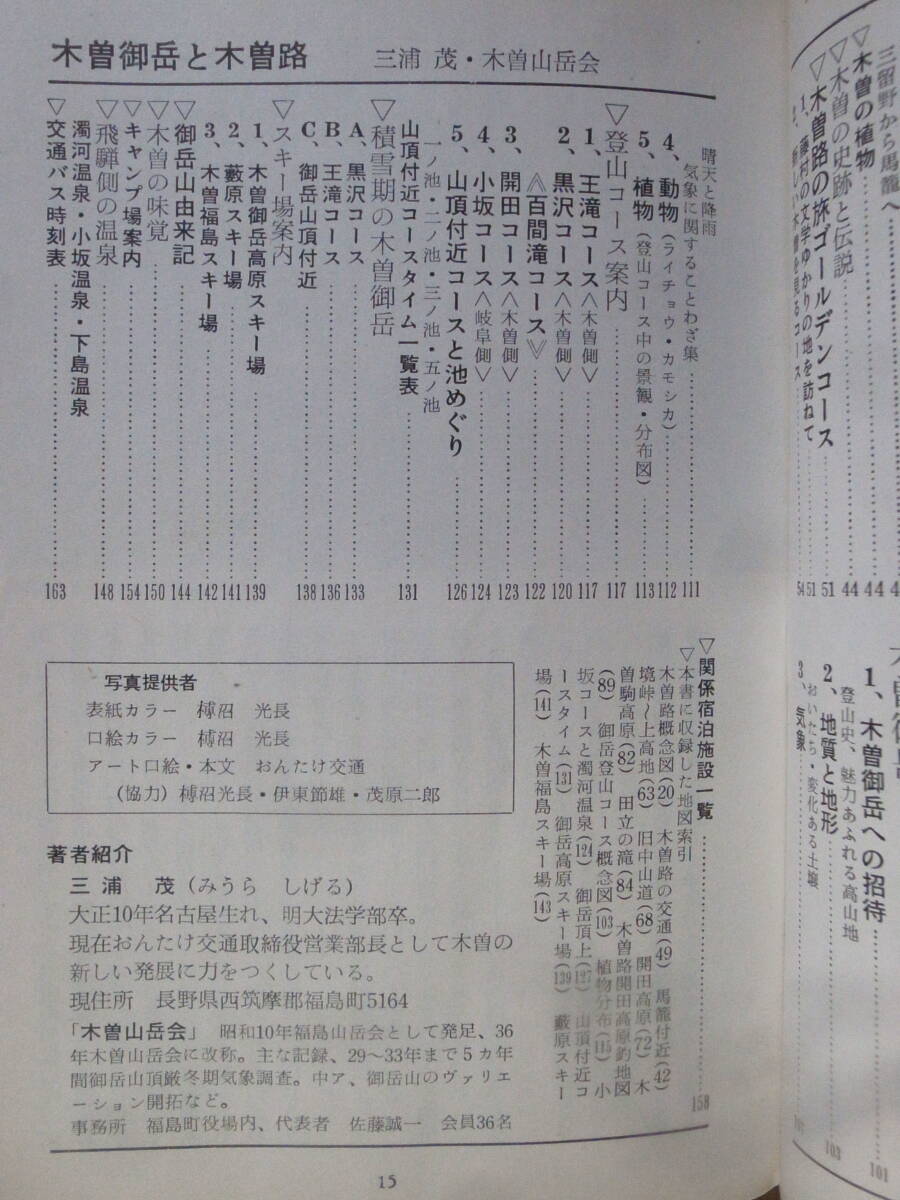 木曽御岳と木曽路　三浦　茂・木曽山岳会
晴天と降雨
気象に関することわざ集……111
4、動物（ライチョウ・カモシカ）……112
5、植物（登山コース中の景観・分布図）……113
▽登山コース案内……117
1、王滝コース＜木曽側＞……117
2、黒沢コース＜木曽側＞……120
《百間滝コース》……122
3、開田コース＜木曽側＞……123
4、小坂コース＜岐阜側＞……124
5、山頂付近コースと池めぐり……126
一ノ池・二ノ池・三ノ池・五ノ池
山頂付近コースタイム一覧表……131
▽積雪期の木曽御岳
A、黒沢コース……133
B、王滝コース……136
C、御岳山頂付近……138
▽スキー場案内
1、木曽御岳高原スキー場……139
2、藪原スキー場……141
3、木曽福島スキー場……142
▽御岳山由来記……144
▽木曽の味覚……150
▽キャンプ場案内……154
▽飛騨側の温泉……148
濁河温泉・小坂温泉・下島温泉
▽交通バス時刻表……163
▽関係宿泊施設一覧……158
▽本書に収録した地図索引
木曽路概念図(20)　木曽路の交通(49)　馬籠付近(42)
境峠～上高地(63)　旧中山道(68)　開田高原(72)　木
曽駒高原(82)　田立の滝(84)　木曽路開田高原釣地図
(89)　御岳登山コース概念図(103)　植物分布(115)　小
坂コースと濁河温泉(124)　御岳頂上(127)　山頂付近コ
ースタイム(131)　御岳高原スキー場(139)　藪原スキー
場(141)　木曽福島スキー場(143)
写真提供者
表紙カラー　榑沼　光長
口絵カラー　榑沼　光長
アート口絵・本文　おんたけ交通
（協力）榑沼光長・伊東節雄・茂原二郎
著者紹介
三浦　茂（みうら　しげる）
大正10年名古屋生れ、明大法学部卒。
現在おんたけ交通取締役営業部長として木曽の
新しい発展に力をつくしている。
現住所　長野県西筑摩郡福島町5164
「木曽山岳会」　昭和10年福島山岳会として発足、36
年木曽山岳会に改称。主な記録、29～33年まで5カ年
間御岳山頂厳冬期気象調査。中ア、御岳山のヴァリエ
ーション開拓など。
事務所　福島町役場内、代表者　佐藤誠一　会員36名
15
三留野から馬籠へ
▽木曽の植物……44
▽木曽の史跡と伝説……44
▽木曽路の旅ゴールデンコース……51
1、藤村の文学ゆかりの地を訪ねて……51
54
1、木曽御岳への招待……101
登山史、魅力あふれる高山地
2、地質と地形……103
おいたち・変化ある土壌
3、気象……107